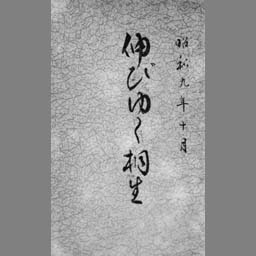 昭和九年十月
伸びゆく桐生